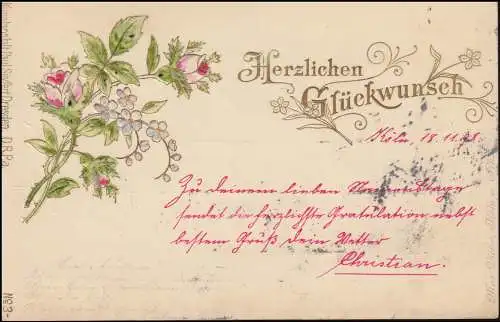 Herzlichen
Glückwunsch
Köln, 18.11.98.
Zu deinem lieben Namenstage
sendet die herzlichste Gratulation nebst
bestem Gruß dein Vetter
Christian.
D.R.P.a.
No 3-